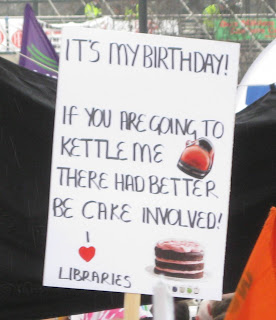 IT'S MY BIRTHDAY!
IF YOU ARE GOING TO
KETTLE ME
THERE HAD BETTER
BE CAKE INVOLVED!
I
LIBRARIES